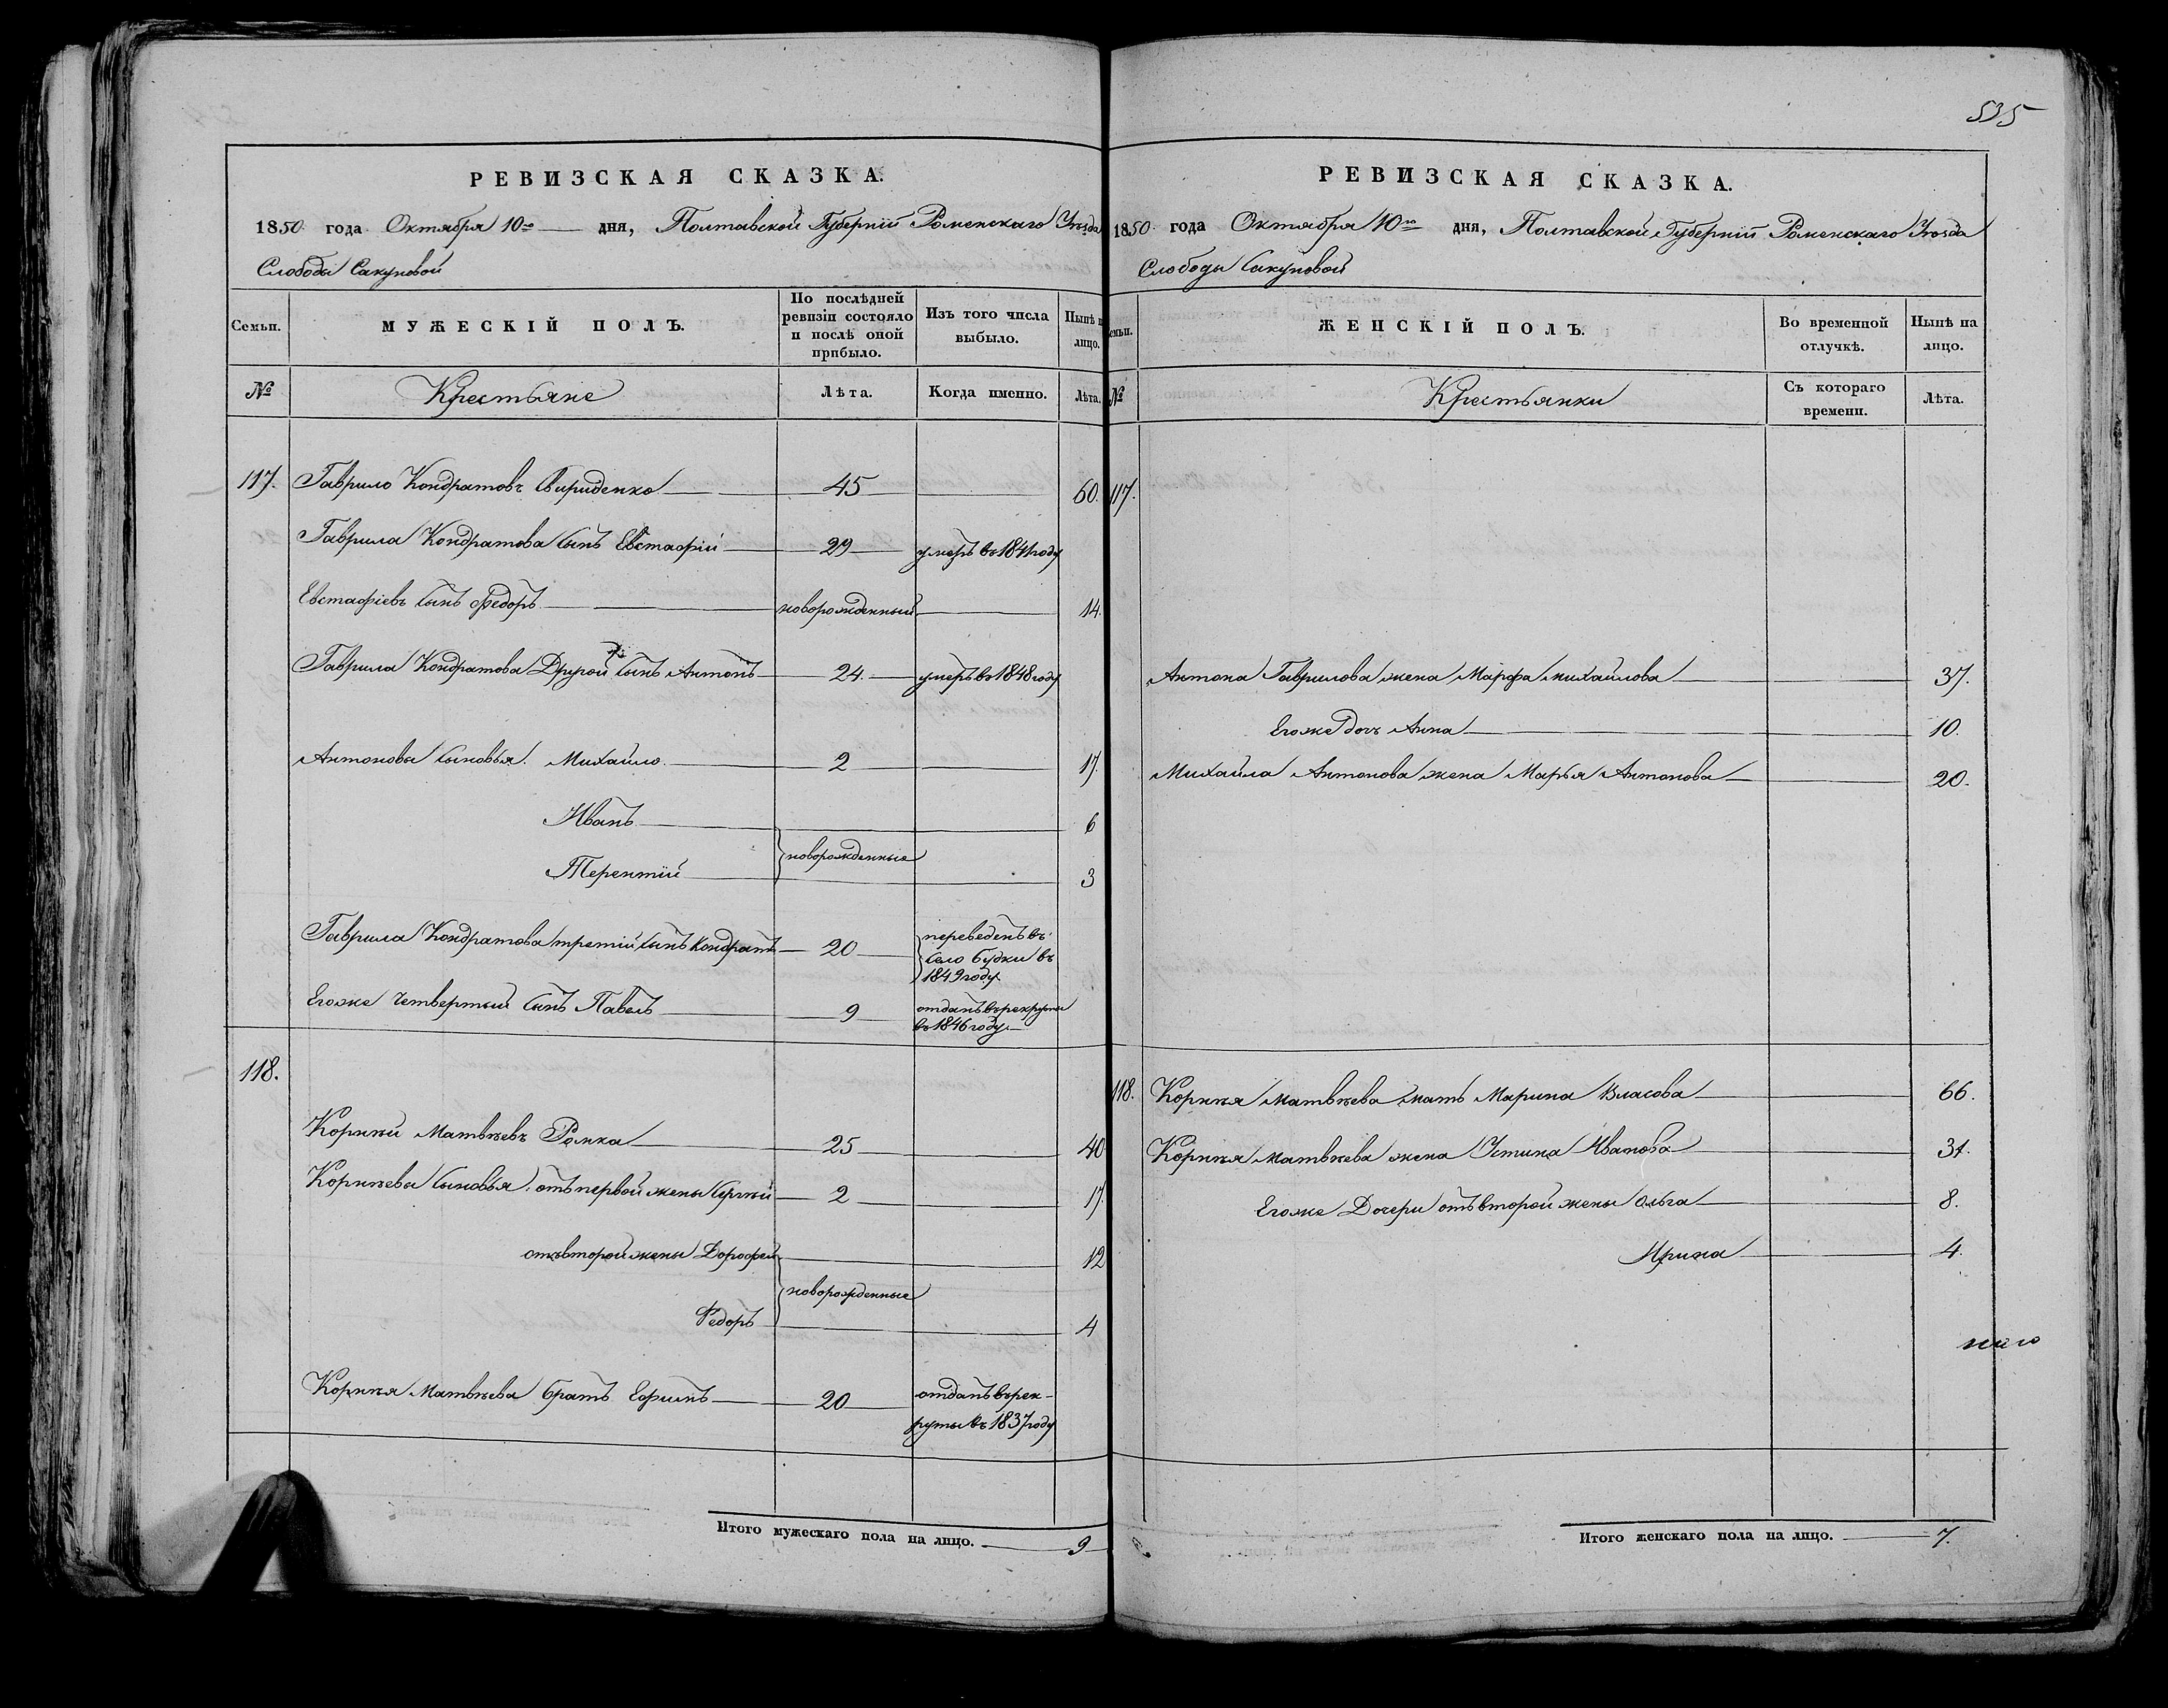 РЕВИЗСКАЯ СКАЗКА.
1850 года Октября 10го дня, Полтавской Губерніи Роменскаго Уѣзда
Слободы Сакуновой
Семьи. МУЖЕСКІЙ ПОЛЪ. По послѣдней ревизіи состояло и послѣ оной прибыло. Изъ того числа выбыло. Нынѣ на лицо.
№ Крестьяне Лѣта. Когда именно. Лѣта.
117. Гаврило Кондратовъ Свириденко 45 60.
Гаврила Кондратова Сынъ Евстафій 29 умеръ въ 1841 году
Евстафіевъ Сынъ Федоръ новорожденный 14.
Гаврила Кондратова Другой Сынъ Антонъ 24. умеръ въ 1848 году
Антоновы Сыновья. Михайло 2 17.
Иванъ 6
новорожденные
Терентій 3
Гаврила Кондратова третій Сынъ Кондратъ 20 переведенъ въ
Село Будки въ
1849 году.
Егоже Четвертый Сынъ Павелъ 9 отданъ въ рекруты
въ 1846 году
118.
Корнѣй Матвѣевъ Ромка 25 40
Корнѣевы Сыновья. отъ первой жены Сергѣй 2 17.
отъ второй жены Дорофей 12
новорожденные
Федоръ 4
Корнѣя Матвѣева братъ Ефимъ 20 отданъ въ рек-
руты въ 1837 году
Итого мужескаго пола на лицо. 9
535
РЕВИЗСКАЯ СКАЗКА.
1850 года Октября 10го дня, Полтавской Губерніи Роменскаго Уѣзда
Слободы Сакуновой
Семьи. ЖЕНСКІЙ ПОЛЪ. Во временной отлучкѣ. Нынѣ на лицо.
№ Крестьянки Съ котораго времени. Лѣта.
117.
Антона Гаврилова жена Марфа михайлова 37.
Егоже Дочь Анна 10.
Михайла Антонова жена Марья Антонова 20.
118. Корнѣя матвѣева мать Марина Власова 66.
Корнѣя матвѣева жена Устина Иванова 31.
Егоже Дочери отъ второй жены Ольга 8.
Ирина 4.
Итого женскаго пола на лицо. 7.